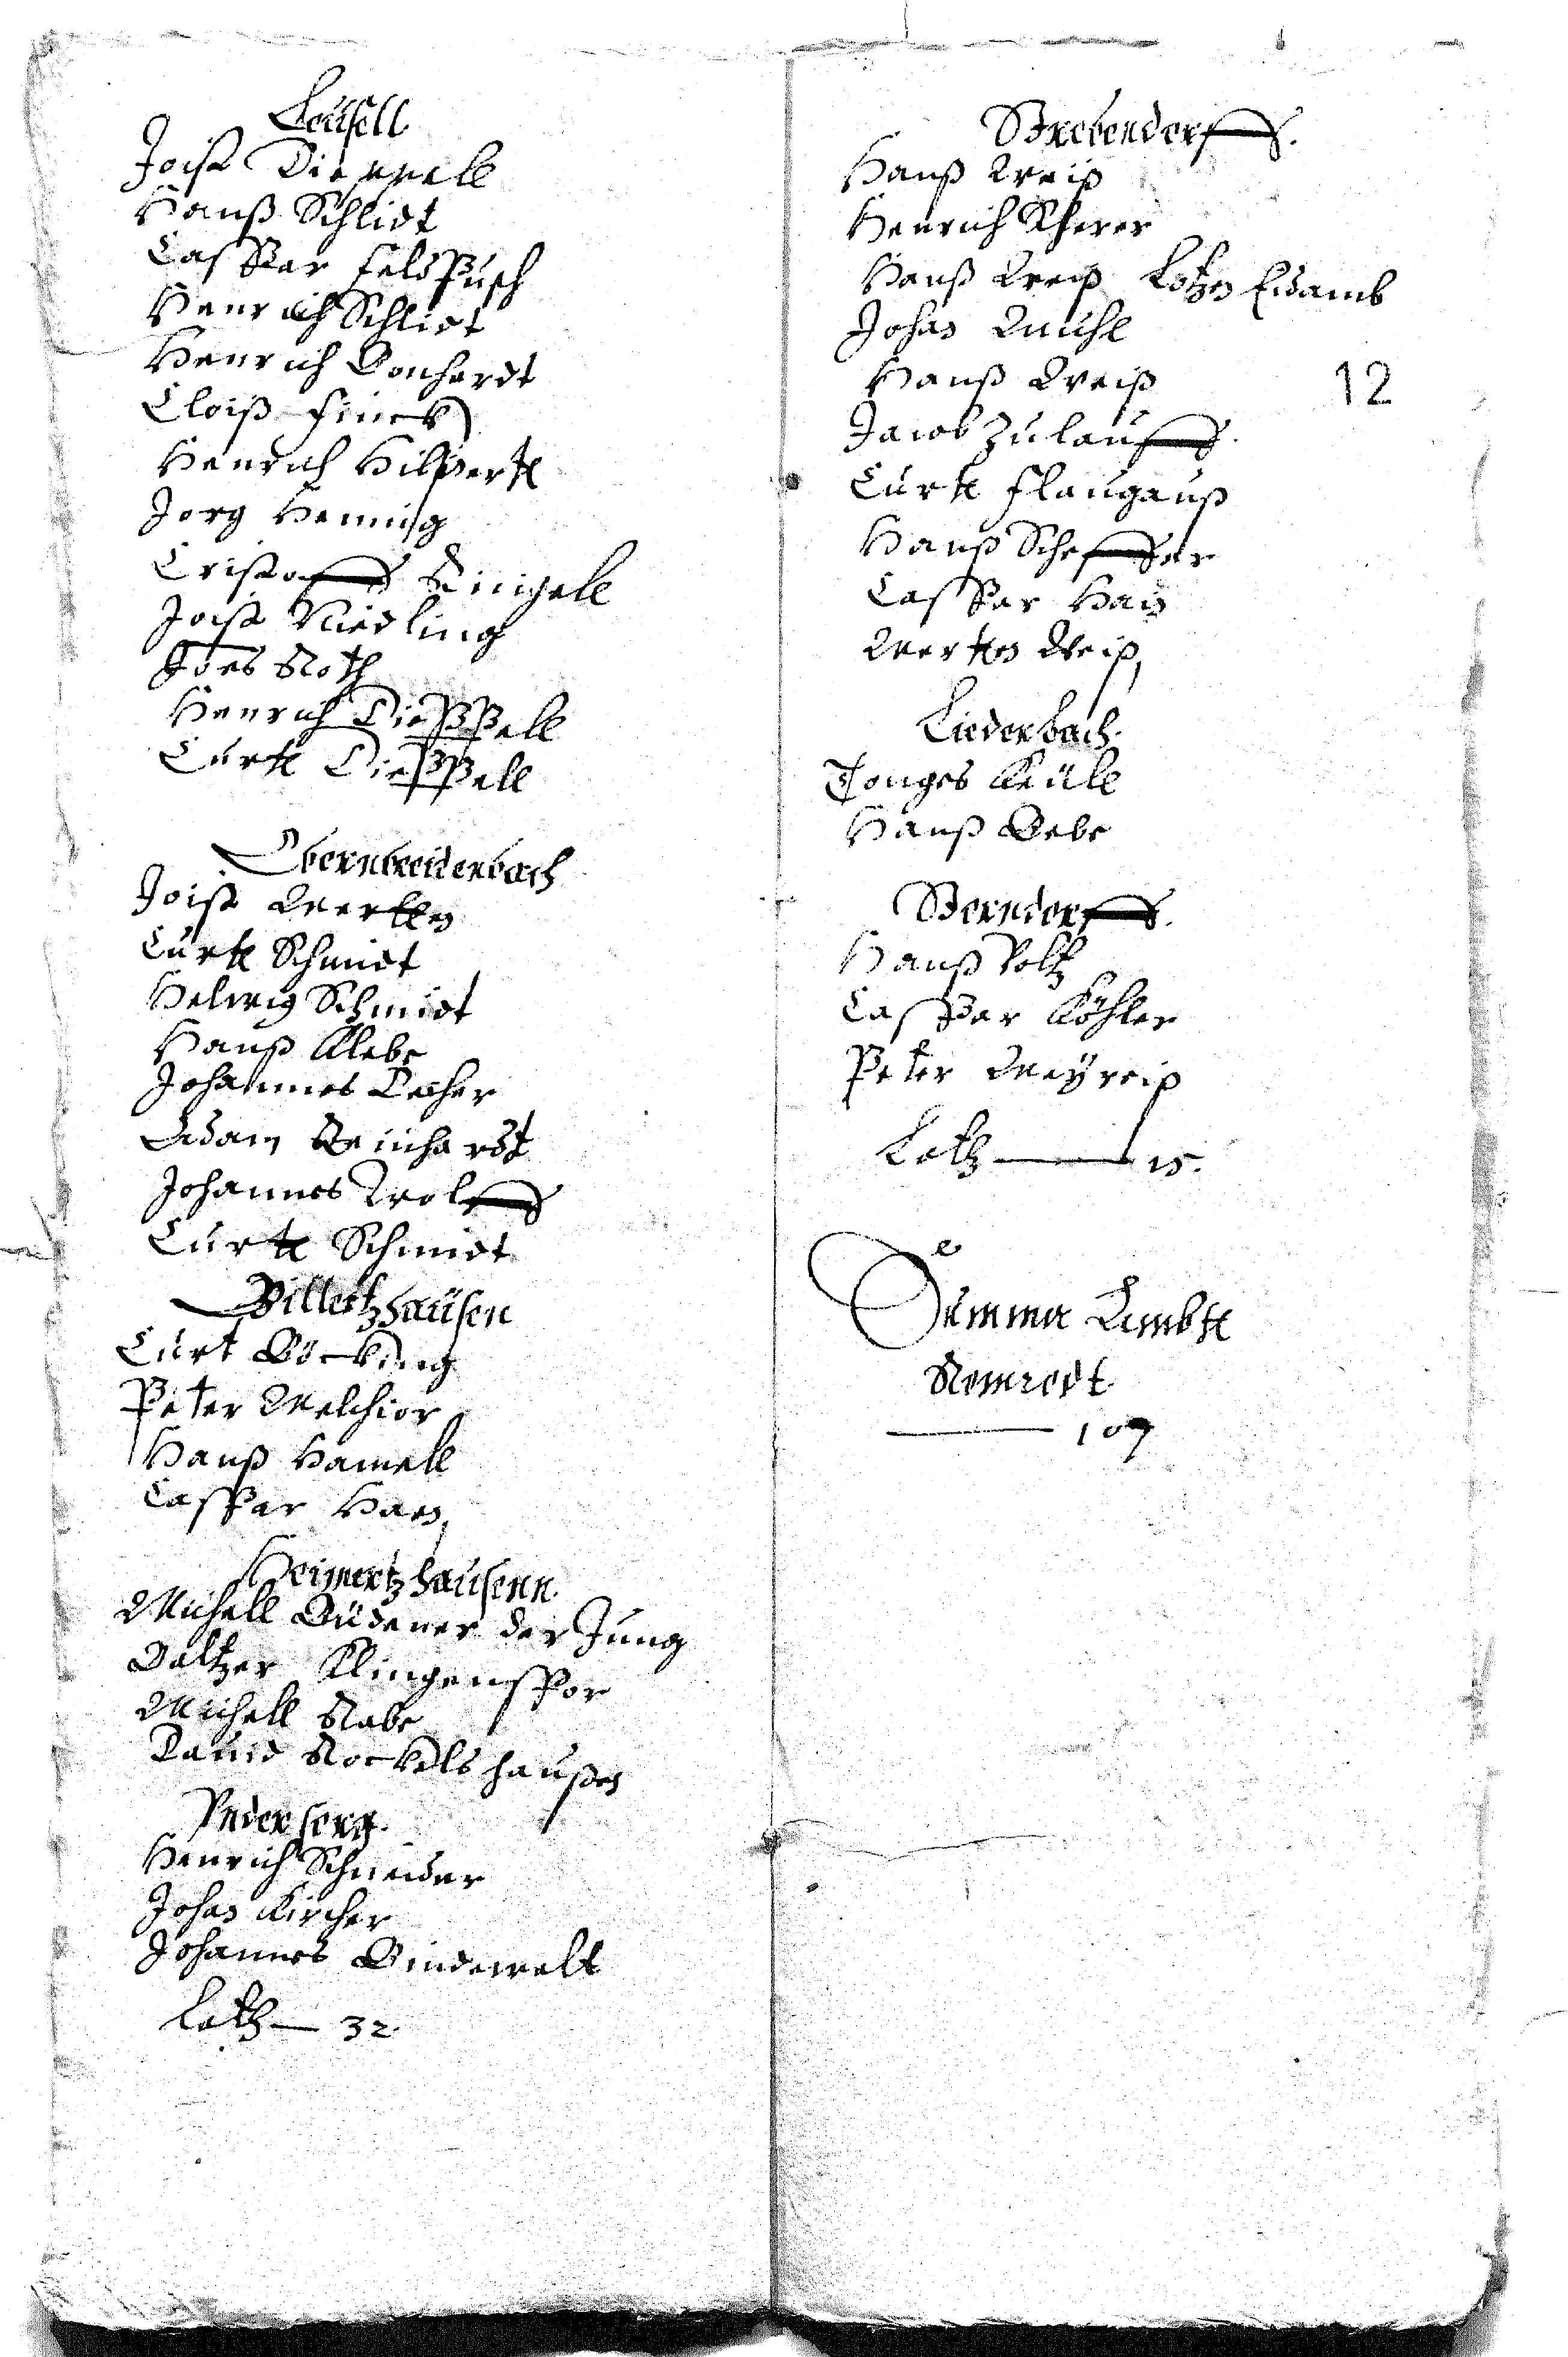 Leüsell
Joist Dieppell
Hanß Schlidt
Casper Feldpusch
Henrich Schlidt
Henrich Bonhardt
Cloiß Finck
Henrich Hilpertt
Jorg Hennig
Cristoff Ringell
Joist Niedling
Joes Roth
Henrich Dieppell
Curtt Dieppell
Obernbreidenbach
Joist Merttenn
Curtt Schmidt
Helwig Schmidt
Hanß Klebe
Johannes Decher
Adam Reinhardt
Johannes Wolff
Curtt Schmidt
Billertzhaüsen
Curt Böcking
Peter Melchior
Hanß Hamell
Casper Han
Heimertzhausenn
Michell Büdener der Jung
Baltzer Klingenspor
Michell Rabe
Dauid Rockelshaußen
Vdersorg
Henrich Schneider
Johan Kircher
Johannes Bindewalt
Latz 32
Strebendorff.
Hanß Weiß
Henrich Scherer
Hanß Weiß Lotzen Eidamb
Johan Muhl
Hanß Weiß
12
Jacob Zulauff
Curtt Flaugauß
Hanß Scheffer
Casper Han
Merten Weiß
Liederbach
Tonges Keüll
Hanß Bebe
Berndorff.
Hanß Voltz
Casper Köhler
Peter Meÿreiß
Latz 15.
Summa Ambtt
Romrodt
107